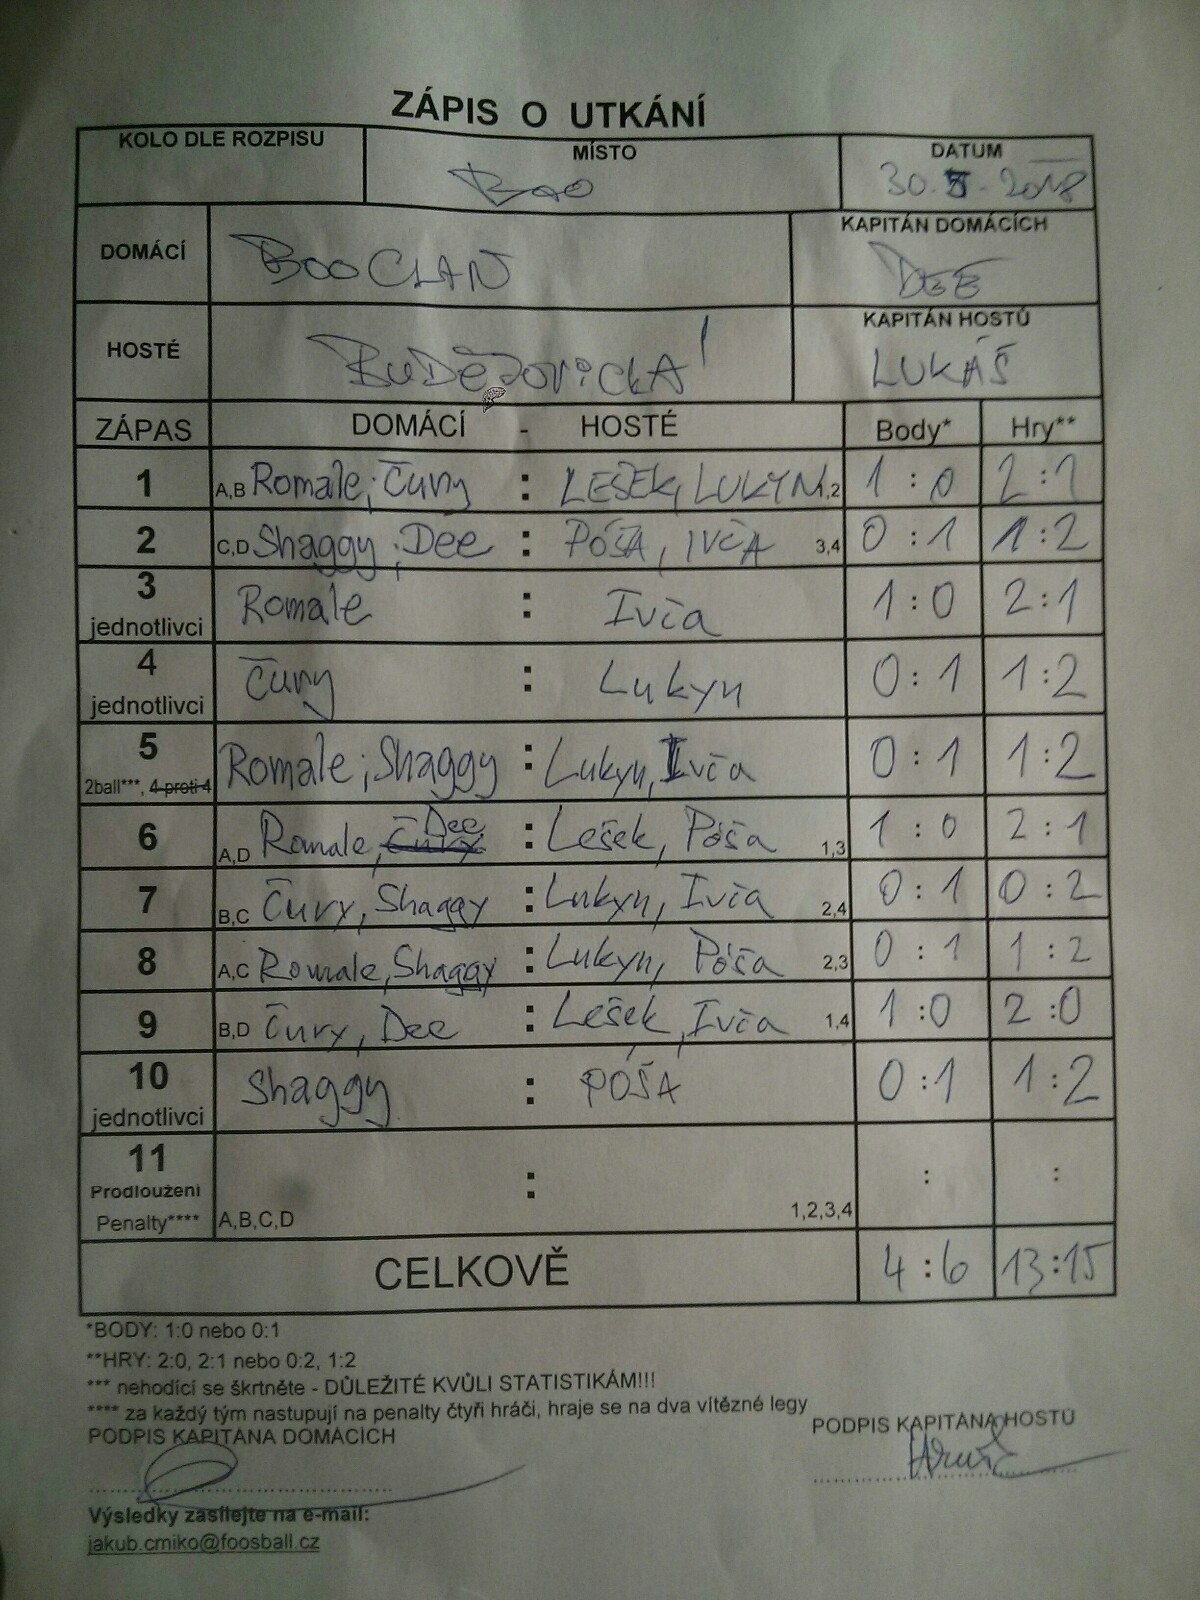 ZÁPIS O UTKÁNÍ
KOLO DLE ROZPISU MÍSTO DATUM
Boo 30. 5. 2018
DOMÁCÍ BOO CLAN KAPITÁN DOMÁCÍCH
DEE
HOSTÉ BUDĚJOVICKÁ! KAPITÁN HOSTŮ
LUKÁŠ
ZÁPAS DOMÁCÍ - HOSTÉ Body* Hry**
1 A,B Romale; Čury : LEŠEK, LUKYN 1,2 1 : 0 2 : 1
2 C,D Shaggy; Dee : PÓŠA, IVČA 3,4 0 : 1 1 : 2
3 jednotlivci Romale : Ivča 1 : 0 2 : 1
4 jednotlivci Čury : Lukyn 0 : 1 1 : 2
5 2ball***, 4 proti 4 Romale; Shaggy : Lukyn, Ivča 0 : 1 1 : 2
6 A,D Romale, Čury Dee : Lešek, Póša 1,3 1 : 0 2 : 1
7 B,C Čury, Shaggy : Lukyn, Ivča 2,4 0 : 1 0 : 2
8 A,C Romale, Shaggy : Lukyn, Póša 2,3 0 : 1 1 : 2
9 B,D Čury, Dee : Lešek, Ivča 1,4 1 : 0 2 : 0
10 jednotlivci Shaggy : PÓŠA 0 : 1 1 : 2
11 Prodloužení : : :
Penalty**** A,B,C,D 1,2,3,4
CELKOVĚ 4 : 6 13 : 15
*BODY: 1:0 nebo 0:1
**HRY: 2:0, 2:1 nebo 0:2, 1:2
*** nehodící se škrtněte - DŮLEŽITÉ KVŮLI STATISTIKÁM!!!
**** za každý tým nastupují na penalty čtyři hráči, hraje se na dva vítězné legy
PODPIS KAPITÁNA DOMÁCÍCH PODPIS KAPITÁNA HOSTŮ
Výsledky zasílejte na e-mail:
jakub.crniko@foosball.cz